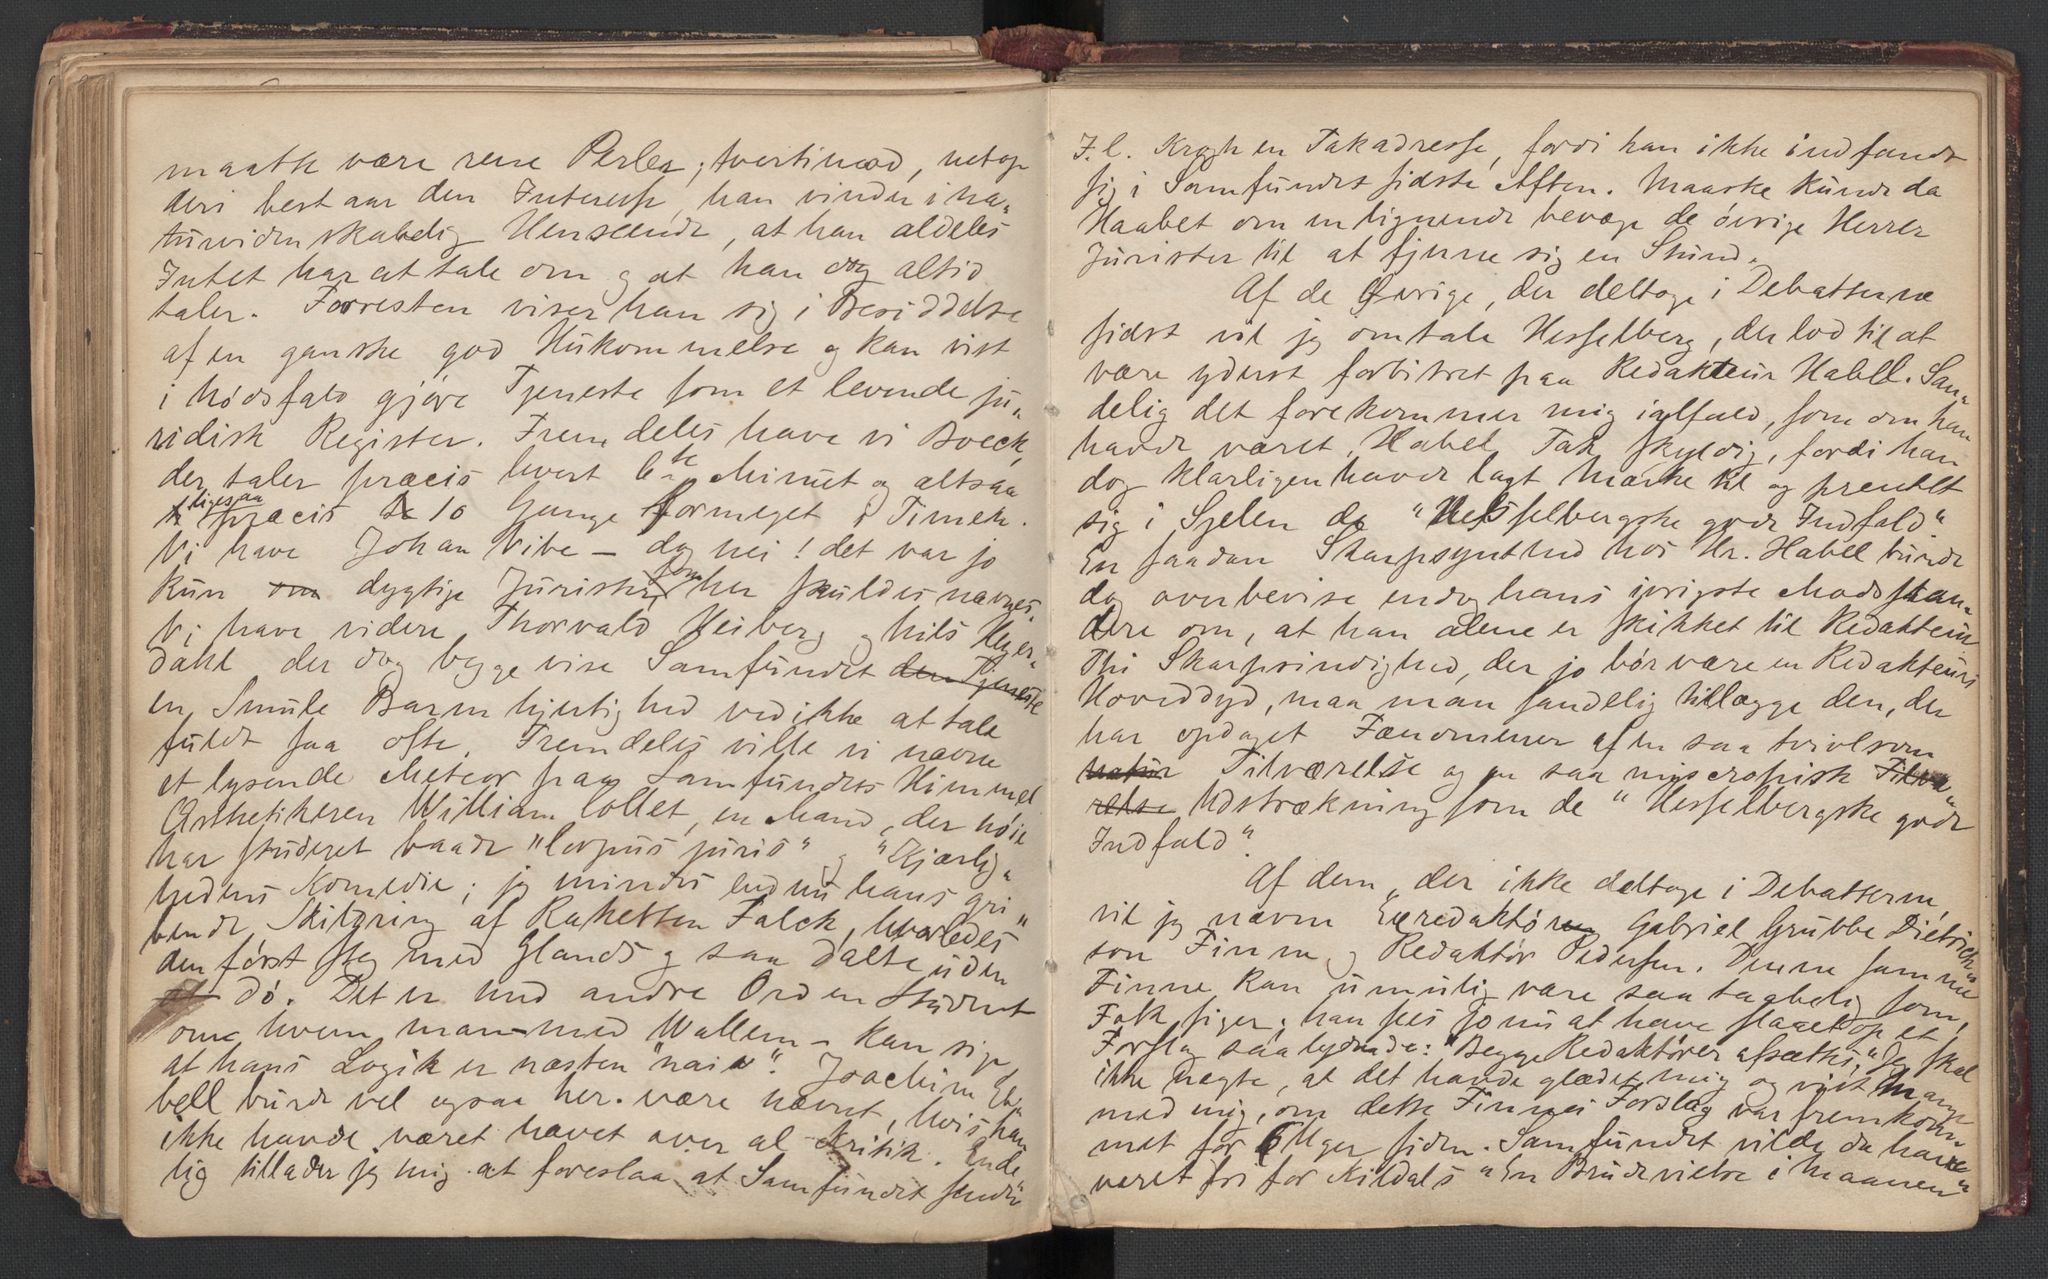 maatte være rene Perler; tvertimod, netop
deri bestaar den Interesse, han vinder i na„
turvidenskabelig Henseende, at han aldeles
Intet har at tale om og at han dog altid
taler. Forresten viser han sig i Besiddelse
af en ganske god Hukommelse og kan vist
i Nødsfald gjøre Tjeneste som et levende ju„
ridisk Register. Fremdeles have vi Boeck,
der taler præcis hvert 6te Minut og altsaa
ligesaa præcis 10 Gange formeget i Timen.
Vi have Johan Vibe – dog nei! det var jo
kun om dygtige Jurister, som her skuldes nævnes.
Vi have videre Thorvald Heiberg og Nils Hejer„
dahl der dog begge vise Samfundet den Tjeneste
en Smule Barmhjertighed ved ikke at tale
fuldt saa ofte. Fremdeles ville vi nævne
et lysende Meteor paa Samfundets Himmel
Æsthetikeren William Collet, en Mand, der nøie
har studeret baade "Corpus juris" og "Kjærlig„
hedens Komedie; jeg mindes endnu hans gri„
bende Skildring af Raketten Falck, hvorledes
den først steg med Glands og saa dalte uden
at dø. Det er med andre Ord en Student
om hvem man – med Wallem – kan sige
at hans Logik er næsten "naiv". Joachim
bell burde vel ogsaa her være nævnt, hvis han
ikke havde været hævet over al Kritik. Ende„
lig tillader jeg mig at foreslaa at Samfundet sender
F. C. Krogh en Takadresse, fordi han ikke indfandt
sig i Samfundet sidste Aften. Maaske kunde da
Haabet om en lignende bevæge de øvrige Herrer
Jurister til at fjerne sig en Stund.
Af de Øvrige, der deltoge i Debatterne
sidst vil jeg omtale Hesselberg, der lod til at
være yderst forbitret paa Redakteur Habell. San„
delig det forekommer mig ialfald, som om han
havde været Habel Tak skyldig, fordi han
dog klarligen havde lagt Mærke til og prentet
sig i Sjelen de "Hesselbergske gode Indfald"
En saadan Skarpsynthed hos Hr. Habell burde
dog overbevise endog hans ivrigste Modstan„
dere om, at han alene er skikket til Redakteur
Thi Skarpsindighed, der jo bør være en Redakteurs
Hoveddyd, maa man sandelig tillægge den, der
har opdaget Fænomener af en saa tvivlsom
natur Tilværelse og en saa miscropisk Tilvæ„
relse Udstrækning som de "Hesselbergske gode
Indfald".
Af dem, der ikke deltoge i Debatterne,
vil jeg nævne Exredaktøren Gabriel Grubbe Dietrich„
son Finne og Redaktør Pedersen. Denne samme
Finne kan umulig være saa tagbelig som,
Falk siger; han sees jo nu at have slaaet op et
Forslag saalydende: "Begge Redaktører afsættes." Jeg skal
ikke nægte, at det havde glædet mig og vist Mange
med mig, om dette Finnes Forslag var fremkom„
met for 6 Uger siden. Samfundet vilde da have
været fri for Kildals "En Brudevielse i Maanen"